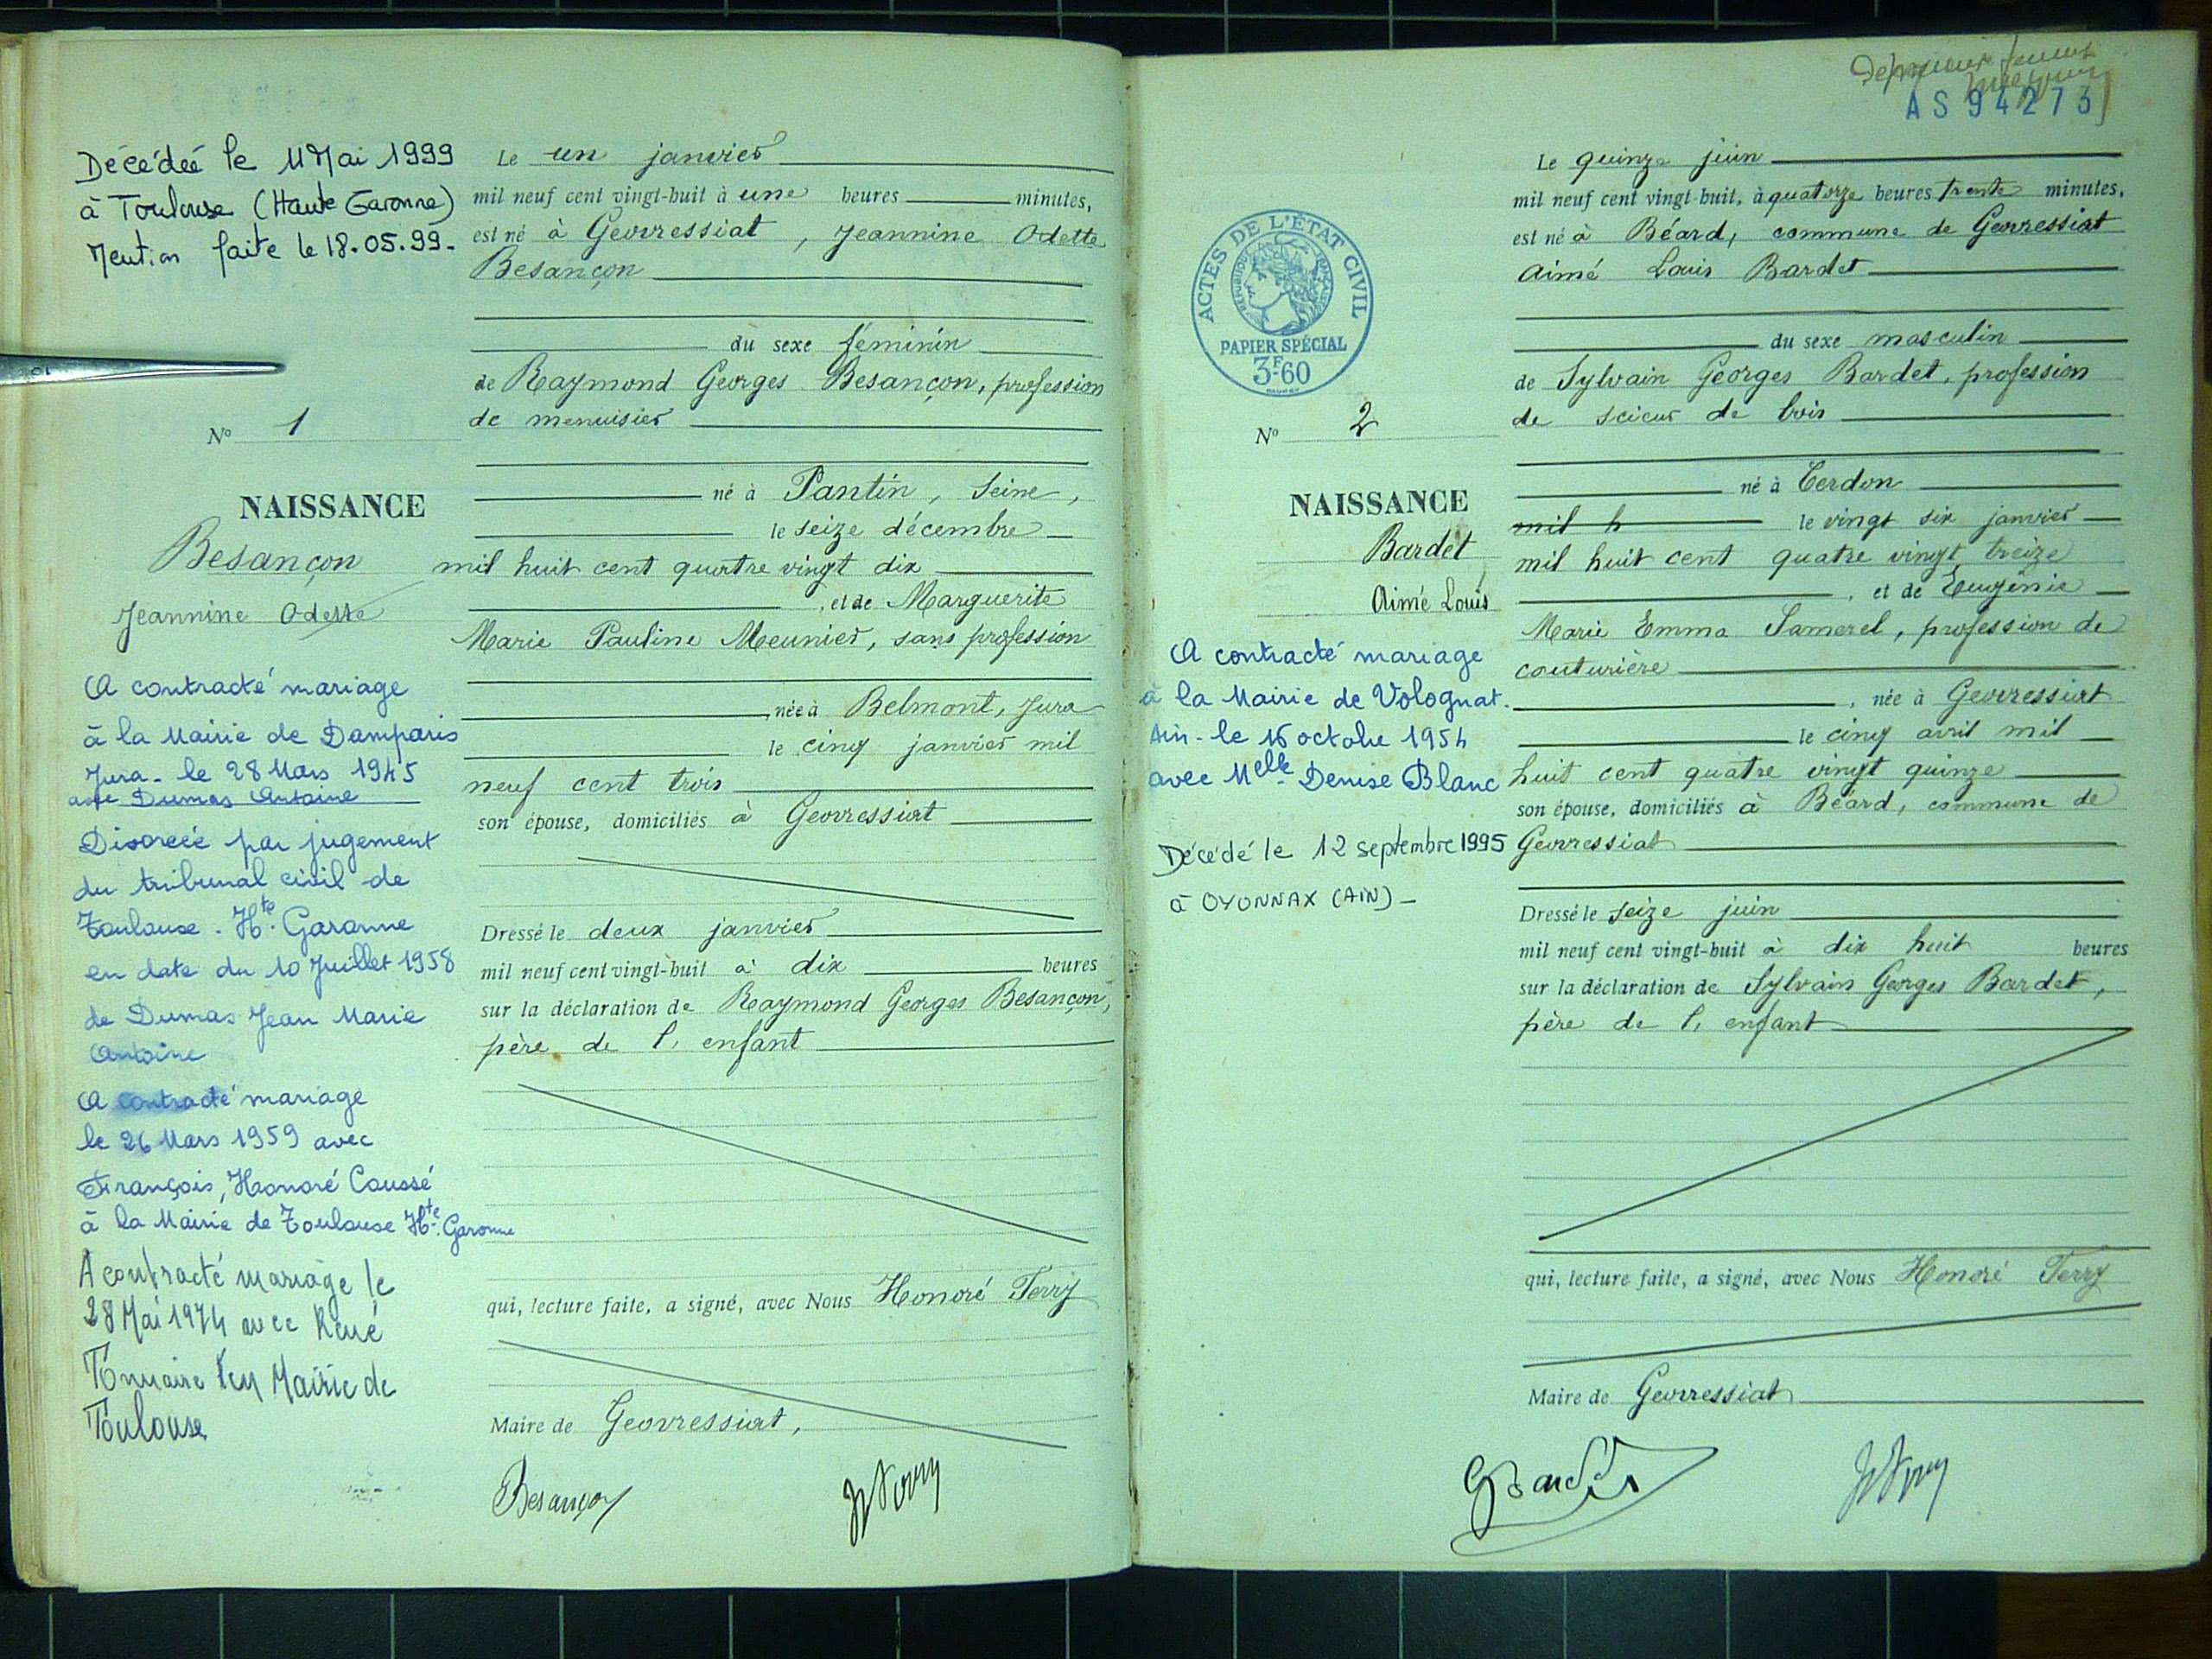 Décédée le 11 Mai 1999
à Toulouse (Haute Garonne)
Mention faite le 18.05.99.
N° 1
NAISSANCE
Besançon
Jeannine Odette
A contracté mariage
à la Mairie de Damparis
Jura - le 28 Mars 1945
avec Dumas Antoine
Divorcée par jugement
du tribunal civil de
Toulouse - Hte. Garonne
en date du 10 Juillet 1958
de Dumas Jean Marie
Antoine
A contracté mariage
le 26 Mars 1959 avec
François, Honoré Coussé
à la Mairie de Toulouse Hte. Garonne
A contracté mariage le
28 Mai 1974 avec René
en Mairie de
Toulouse
Le un janvier
mil neuf cent vingt-huit à une heures minutes,
est né à Géovressiat, Jeannine Odette
Besançon
du sexe féminin
de Raymond Georges Besançon, profession
de menuisier
né à Pantin, Seine,
le seize décembre
mil huit cent quatre vingt dix
, et de Marguerite
Marie Pauline Meunier, sans profession
, née à Belmont, Jura
le cinq janvier mil
neuf cent trois
son épouse, domiciliés à Géovressiat
Dressé le deux janvier
mil neuf cent vingt-huit à dix heures
sur la déclaration de Raymond Georges Besançon,
père de l'enfant
qui, lecture faite, a signé, avec Nous Honoré Ferry
Maire de Géovressiat,
Besançon
AS 94273
ACTES DE L'ÉTAT CIVIL
RÉPUBLIQUE FRANÇAISE
PAPIER SPÉCIAL
3F60
N° 2
NAISSANCE
Bardet
Aimé Louis
A contracté mariage
à la Mairie de Volognat.
Ain - le 16 octobre 1954
avec Melle Denise Blanc
Décédé le 12 septembre 1995
à OYONNAX (AIN) -
Le quinze juin
mil neuf cent vingt-huit, à quatorze heures trente minutes,
est né à Béard, commune de Géovressiat
Aimé Louis Bardet
du sexe masculin
de Sylvain Georges Bardet, profession
de scieur de bois
né à Cerdon
mil h le vingt six janvier
mil huit cent quatre vingt treize
, et de Eugénie
Marie Emma Samerel, profession de
couturière
, née à Géovressiat
le cinq avril mil
huit cent quatre vingt quinze
son épouse, domiciliés à Béard, commune de
Géovressiat
Dressé le seize juin
mil neuf cent vingt-huit à dix huit heures
sur la déclaration de Sylvain Georges Bardet,
père de l'enfant
qui, lecture faite, a signé, avec Nous Honoré Ferry
Maire de Géovressiat
GBardet